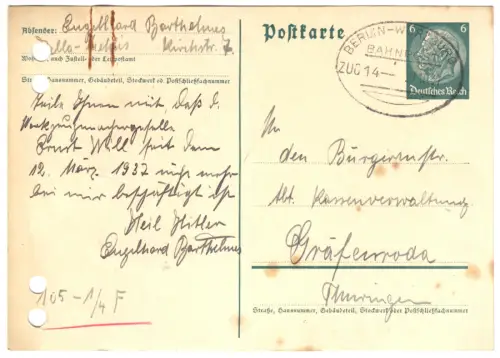 Absender: Engelhard Barthelmes
Zella-Mehlis
Wohnort, auch Zustell- oder Leitpostamt
Straße, Hausnummer, Gebäudeteil, Stockwerk od. Postschließfachnummer
Teile Ihnen mit, daß d.
Werkzeugmachergeselle
Ernst Will seit dem
12. März 1937 nicht mehr
bei mir beschäftigt ist
Heil Hitler
Engelhard Barthelmes
105-1/4 F
Postkarte
BERLIN-W
BAHN
ZUG 14
6 6
Deutsches Reich
An
den Bürgermstr.
Abt. Kassenverwaltung
Gräfenroda
Thüringen
Straße, Hausnummer, Gebäudeteil, Stockwerk oder Postschließfachnummer